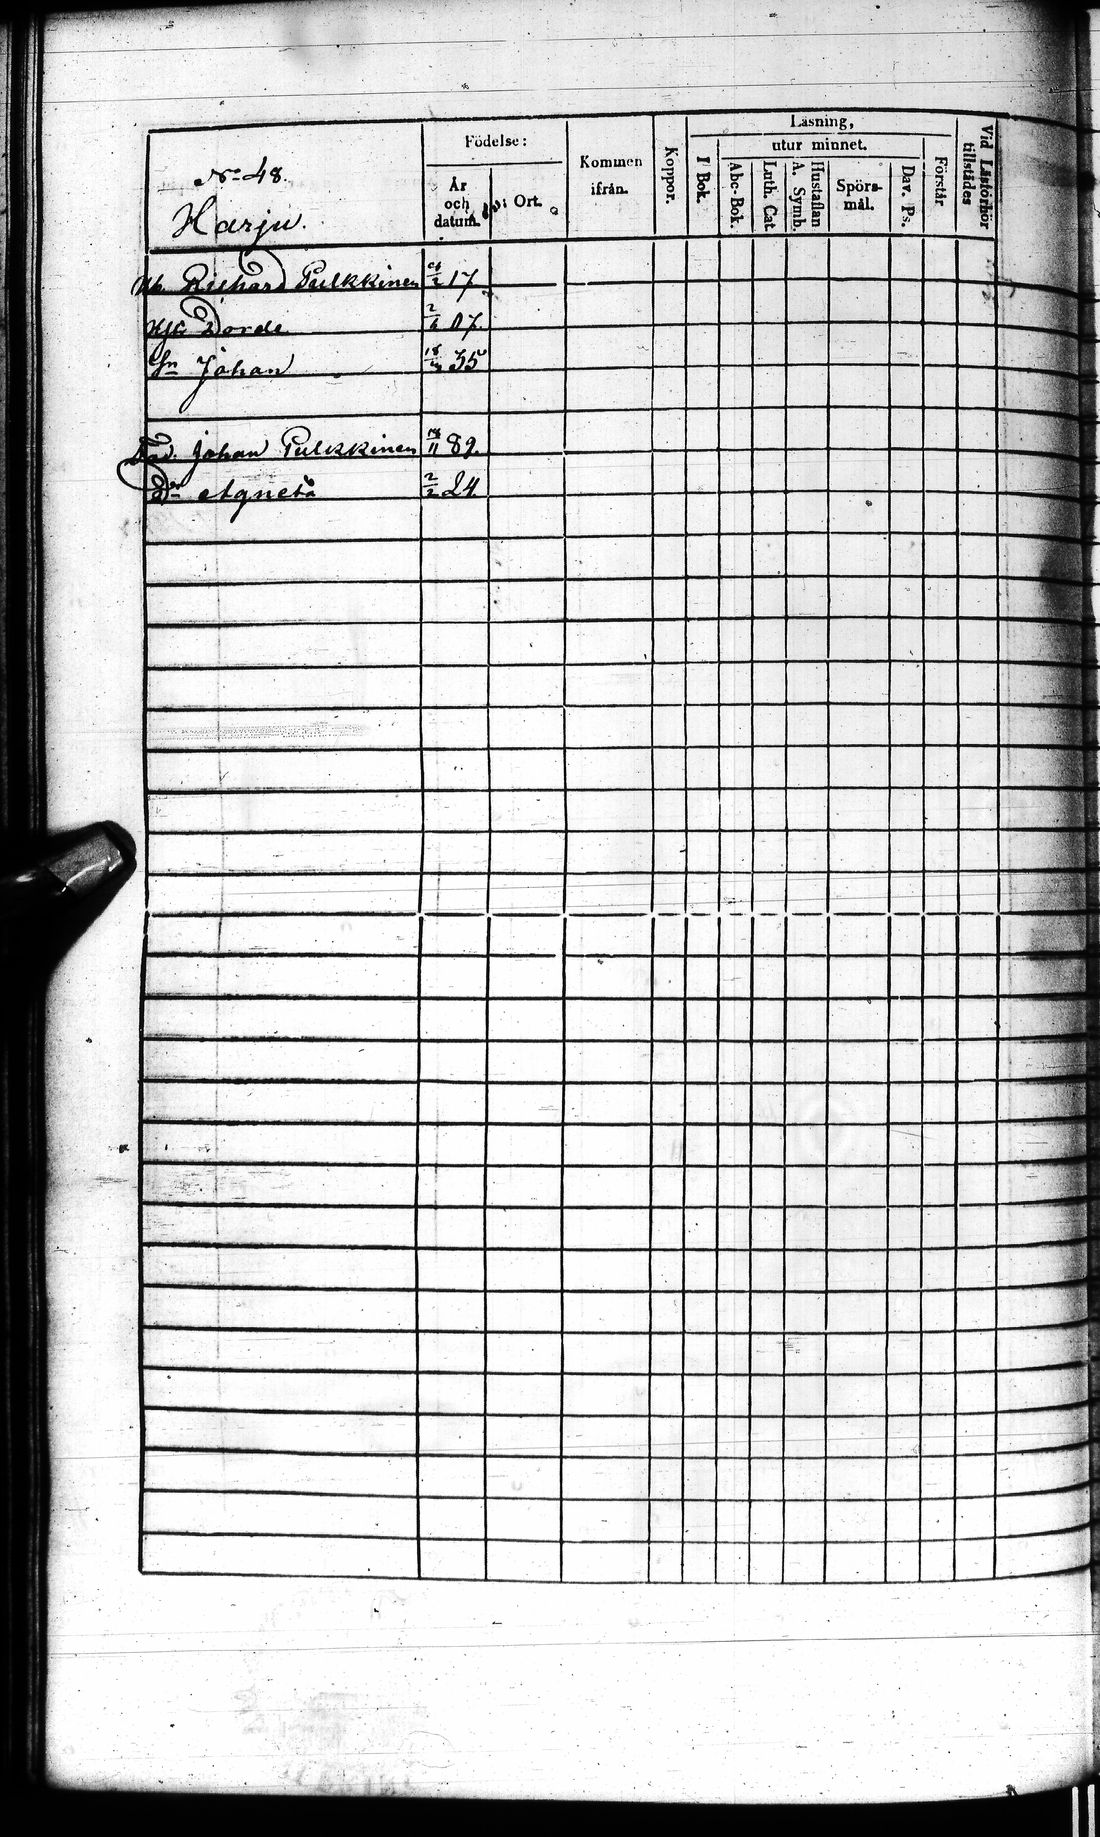 No 48.
Harju.
Födelse:
År och datum.
Ort.
Kommen ifrån.
Koppor.
Läsning,
utur minnet.
I Bok.
Abc-Bok.
Luth. Cat
Hustaflan A. Symb.
Spörsmål.
Dav. Ps.
Förstår
Vid Läsförhör tillstädes
Richard Pulkkinen 17.
Dorde 2/6 07.
Sn Johan 35
Johan Pulkkinen 18/11 89.
Dr Agneta 2/2 24